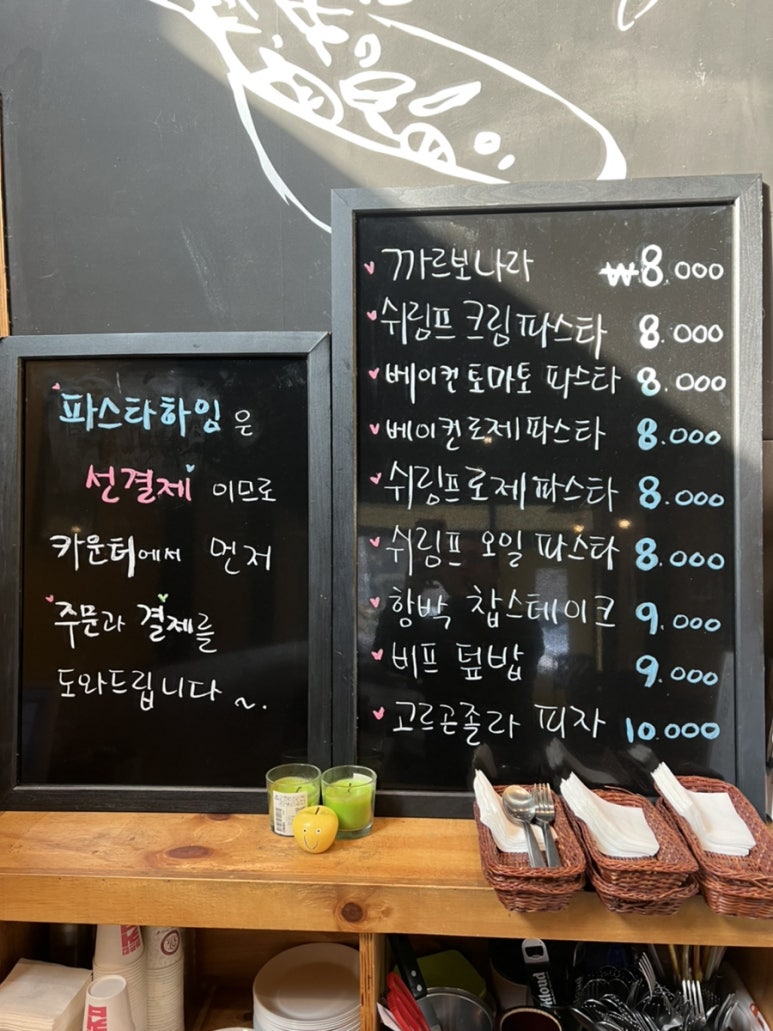 파스타하임은
선결제 이므로
카운터에서 먼저
주문과 결제를
도와드립니다 ~.
까르보나라 ₩8.000
쉬림프 크림파스타 8.000
베이컨토마토 파스타 8.000
베이컨로제파스타 8.000
쉬림프로제파스타 8.000
쉬림프 오일 파스타 8.000
함박 찹스테이크 9.000
비프 덮밥 9.000
고르곤졸라 피자 10.000